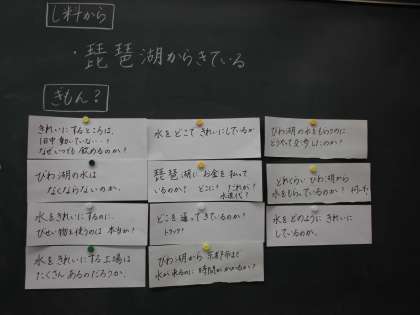 し料から
・琵琶湖からきている
きもん?
きれいにするところは、
1日中動いている…?
なぜいつでも飲めるのか?
水をどこできれいにしているか
びわ湖の水をもらうのに
どうやって交渉したのか?
びわ湖の水は
なくならないのか。
琵琶湖にお金を払って
いるのか? どこに? だれが?
水道代?
どれくらいびわ湖から
水をもらっているのか?
水をきれいにするのに、
びせい物を使うのは本当か?
どこを通ってきているのか?
トラック?
水をどのようにきれいに
しているか。
水をきれいにする工場は
たくさんあるのだろうか。
びわ湖から京都市まで
水が来るのに時間がかかるか?